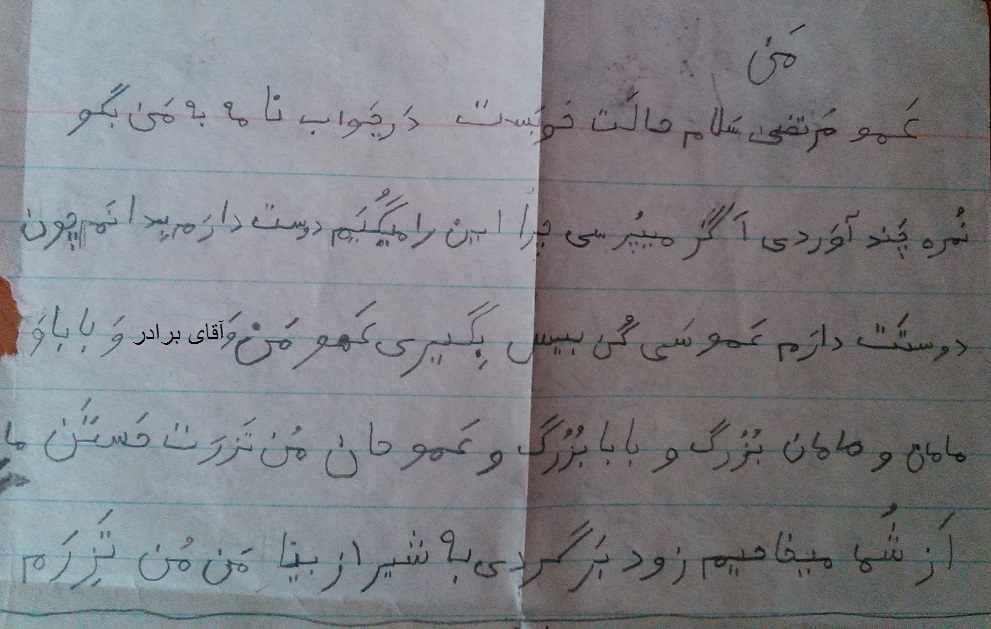 مَن
عَمو مَرتضی سَلام حالَت خوبَست دَر جَواب نامه به مَن بگو
نُمره چَند آوَردی اَگَر میپُرسی چِرا این را میگُیَم دوست دارَم بِدانَم چون
دوستَت دارَم عَمو سَی کُن بیس بِگیری عَمو مَن وَ آقای برادر وَ بابا وَ
مامان و مامان بُزُرگ و بابابُزُرگ و عَمو جان مُن تَزِرَت هَستَن ما
اَز شُما میخاهیم زود بَرگردی به شیراز بیتا مَن مُن تَزِرَم